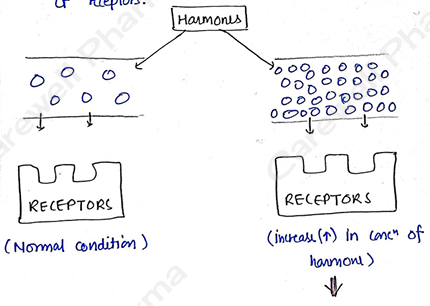 of receptors.
Harmones
RECEPTORS
RECEPTORS
(Normal condition)
(increase(↑) in concⁿ of
harmone)